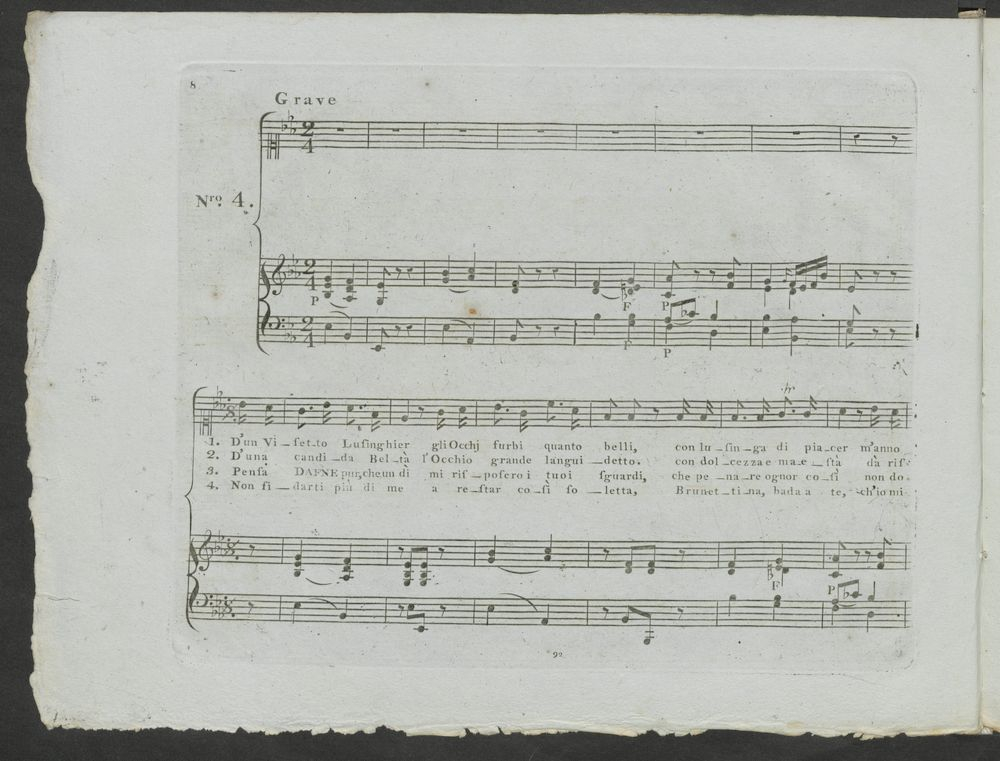 8
Grave
Nro. 4.
P F P
F P
1. D'un Vi_set_to Lusinghier gli Occhj furbi quanto belli, con lu_sin_ga di pia_cer m'anno
2. D'una candi_da Bel_tà l'Occhio grande langui_detto. con dol_cezza e ma_e_stà dà ris
3. Pensa DAFNE pur, che un dì mi ris_posero i tuoi sguardi, che pe_na_re ognor co_sì non do
4. Non fi_darti più di me a re_star co_sì so_letta, Brunet_ti_na, bada a te, ch'io mi
F P
92